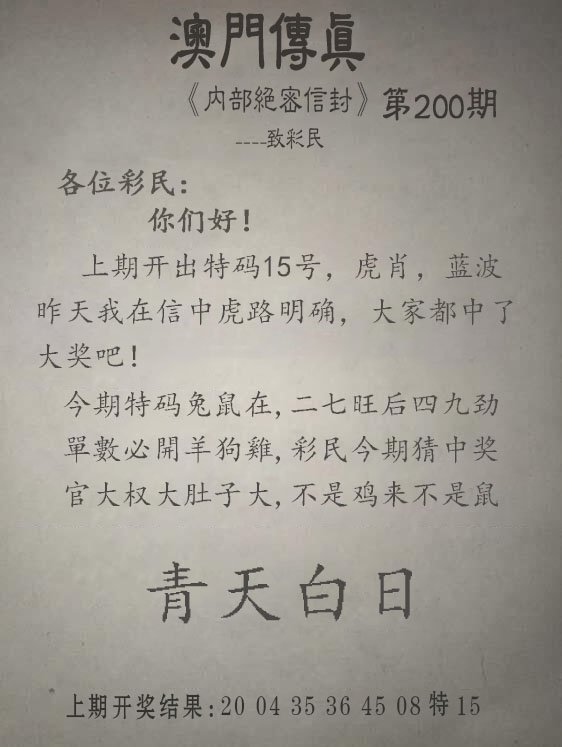 澳門傳眞
《内部絕密信封》第200期
----致彩民
各位彩民：
你们好！
上期开出特码15号，虎肖，蓝波
昨天我在信中虎路明确，大家都中了
大奖吧！
今期特码兔鼠在,二七旺后四九劲
單數必開羊狗雞,彩民今期猜中奖
官大权大肚子大,不是鸡来不是鼠
青天白日
上期开奖结果:20 04 35 36 45 08 特 15